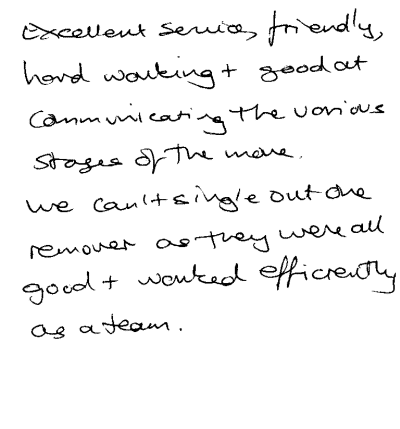 Excellent service, friendly,
hard working + good at
communicating the various
stages of the move.
We can't single out one
remover as they were all
good + worked efficiently
as a team.